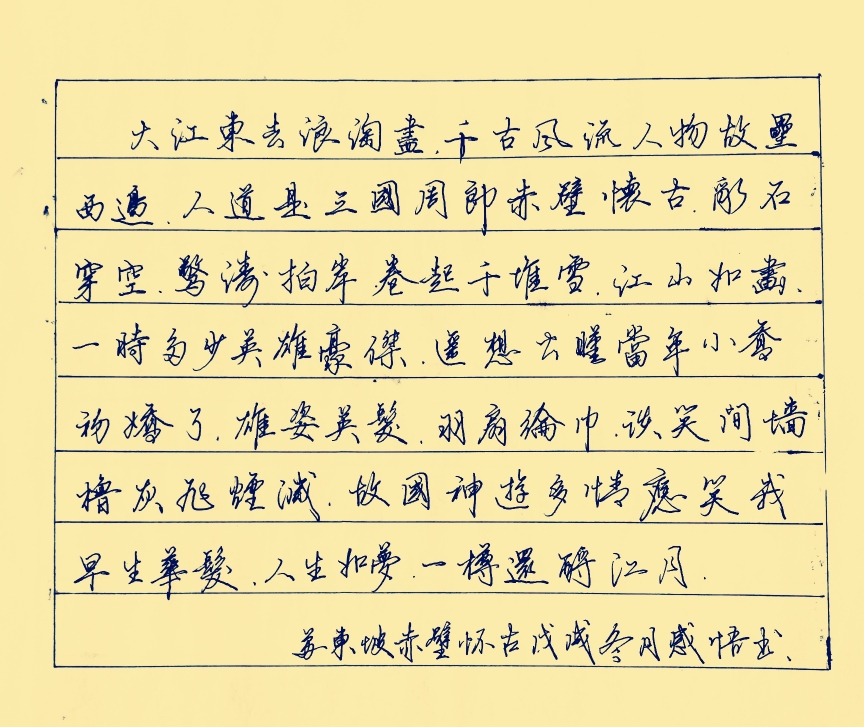 大江東去浪淘盡.千古風流人物故壘
西邊.人道是三國周郎赤壁懷古.彫石
穿空.驚濤拍岸.卷起千堆雪.江山如畫、
一時多少英雄豪傑.遥想公瑾當年小喬
初嬌了.雄姿英髮.羽扇綸巾.談笑間墻
櫓灰飛煙滅.故國神遊多情應笑我
早生華髮.人生如夢.一樽還酹江月.
苏東坡赤壁怀古戊戌冬月感悟书、